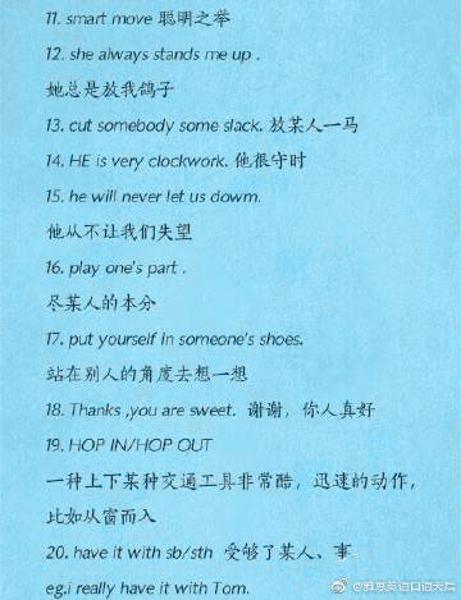 11. smart move 聪明之举
12. she always stands me up .
她总是放我鸽子
13. cut somebody some slack. 放某人一马
14. HE is very clockwork. 他很守时
15. he will never let us dowm.
他从不让我们失望
16. play one's part .
尽某人的本分
17. put yourself in someone's shoes.
站在别人的角度去想一想
18. Thanks ,you are sweet. 谢谢，你人真好
19. HOP IN/HOP OUT
一种上下某种交通工具非常酷，迅速的动作，
比如从窗而入
20. have it with sb/sth 受够了某人、事
eg.i really have it with Tom.
@雅思英语口语天后